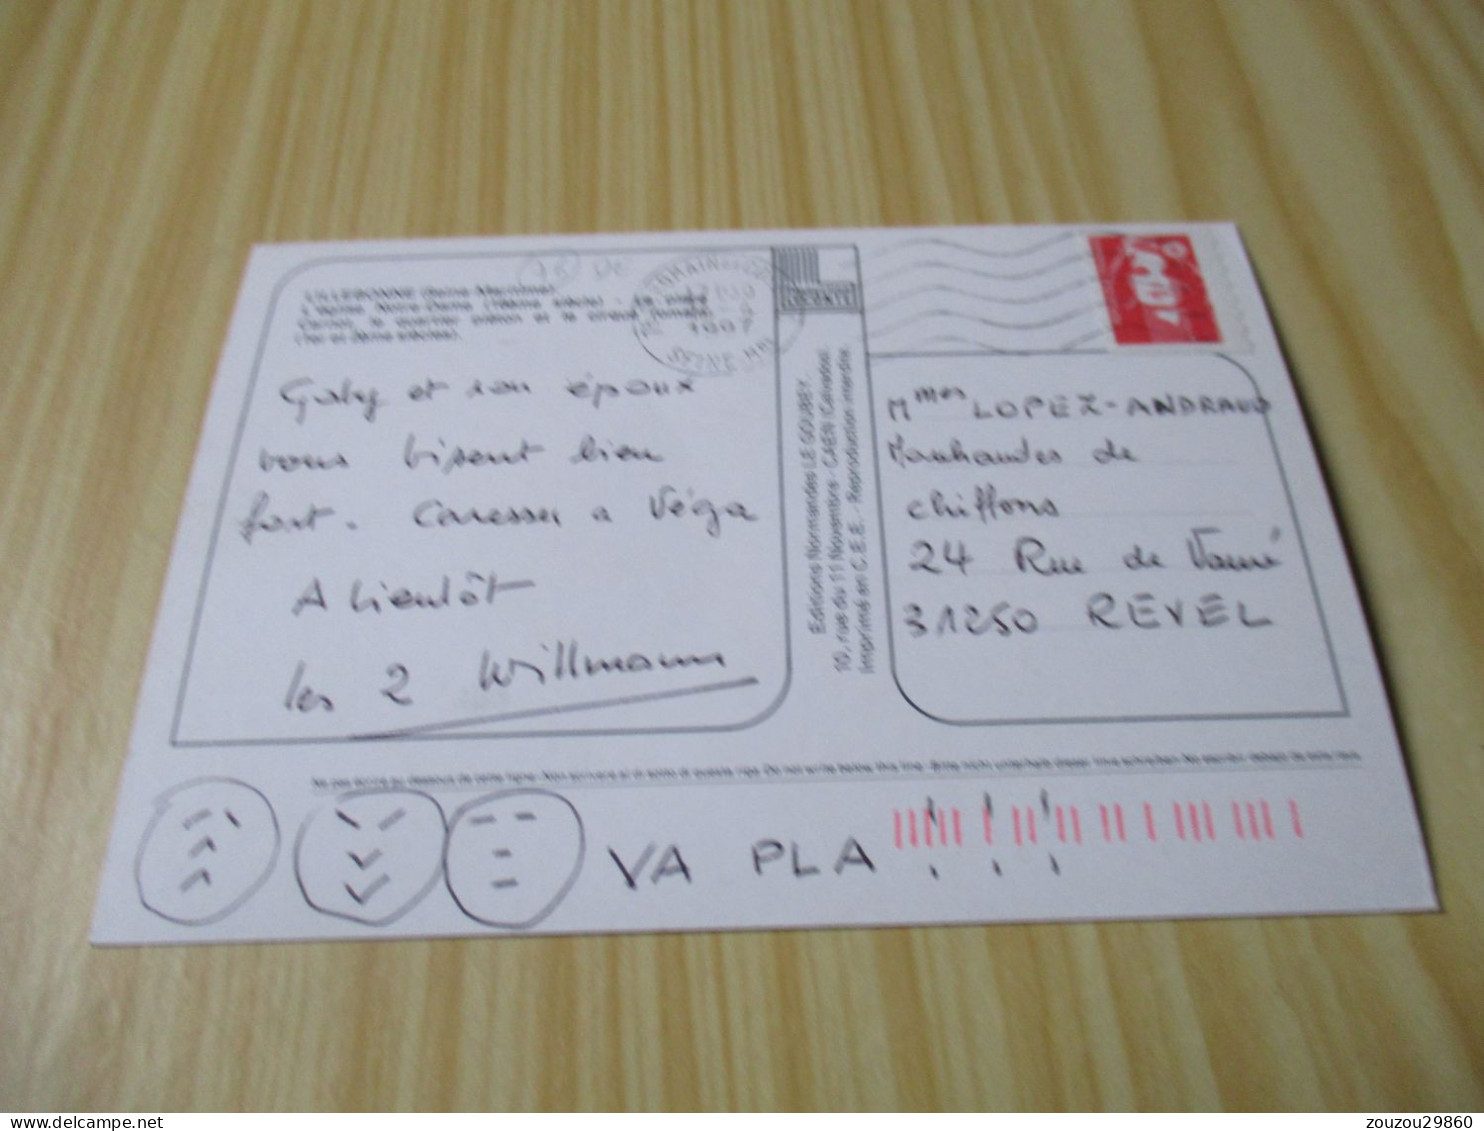 LILLEBONNE (Seine-Maritime).
L'église Notre-Dame (16ème siècle) - La place
Carnot, le quartier piéton et le cirque romain
(1er et 2ème siècles).
1997
SEINE MAR
Gaby et son époux
vous bisent bien
fort. Caresses a Véga
A bientôt
les 2 Willmann
Editions Normandes LE GOUBEY
10, rue du 11 Novembre - CAEN (Calvados).
Imprimé en C.E.E. - Reproduction interdite.
Mmes LOPEZ-ANDRAUD
Marchandes de
chiffons
24 Rue de Vauré
31250 REVEL
Ne pas écrire au dessous de cette ligne. Non scrivere al di sotto di questa riga. Do not write below this line. Bitte nicht unterhalb dieser Linie schreiben. No escribir debajo de esta raya.
VA PLA ! ! !
zouzou29860